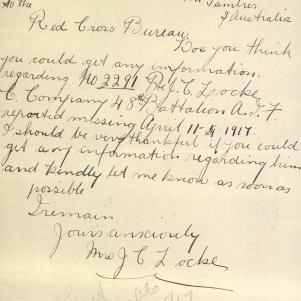 To the
S Australia
Red Cross Bureau.
Doe you think
you could get any information
regarding No 2211 Pte J. C. Locke
C. Company 48th Battalion A.I.F
reported missing April 11-th 1917.
I should be very thankful if you could
get any information regarding him
and kindly let me know as soon as
possible
I remain
Yours anxiously
Mrs J C Locke